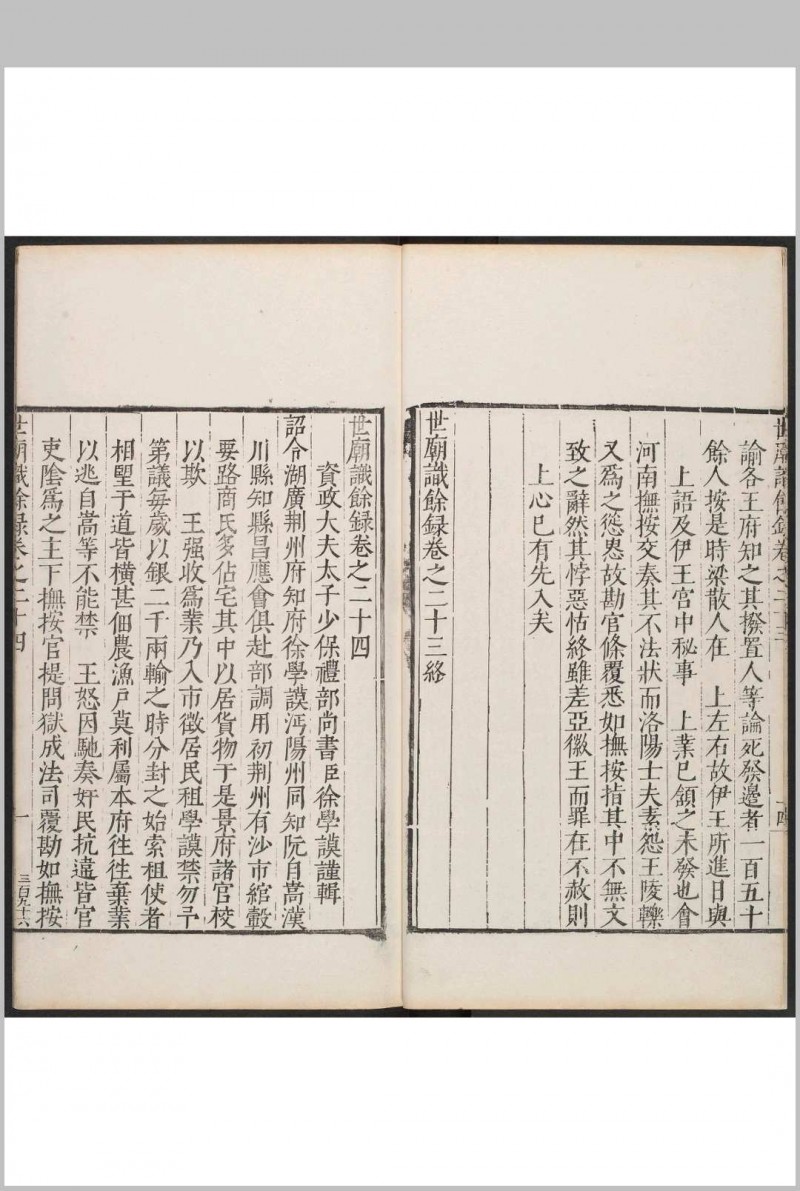 諭各王府知之其撥置人等論死發邊者一百五十
餘人按是時梁散人在　上左右故伊王所進日與
上語及伊王宮中秘事　上業已領之未發也會
河南撫按交奏其不法狀而洛陽士夫素怨王陵轢
又為之慫恿故勘官條覆悉如撫按指其中不無文
致之辭然其悖惡怙終雖差亞徽王而罪在不赦則
上心已有先入矣
世廟識餘録卷之二十三終
世廟識餘録卷之二十四
資政大夫太子少保禮部尚書臣徐學謨謹輯
詔令湖廣荆州府知府徐學謨沔陽州同知阮自嵩漢
川縣知縣昌應會俱赴部調用初荆州有沙市綰轂
要路商氏多佔宅其中以居貨物于是景府諸官校
以欺　王强收為業乃入市徵居民租學謨禁勿予
第議每歲以銀二千兩輸之時分封之始索租使者
相望于道皆横甚佃農漁戶莫利屬本府往徃棄業
以逃自嵩等不能禁　王怒因馳奏奸民抗違皆官
吏陰為之主下撫按官提問獄成法司覆勘如撫按
世廟識餘録卷之二十四
一
三百九十六